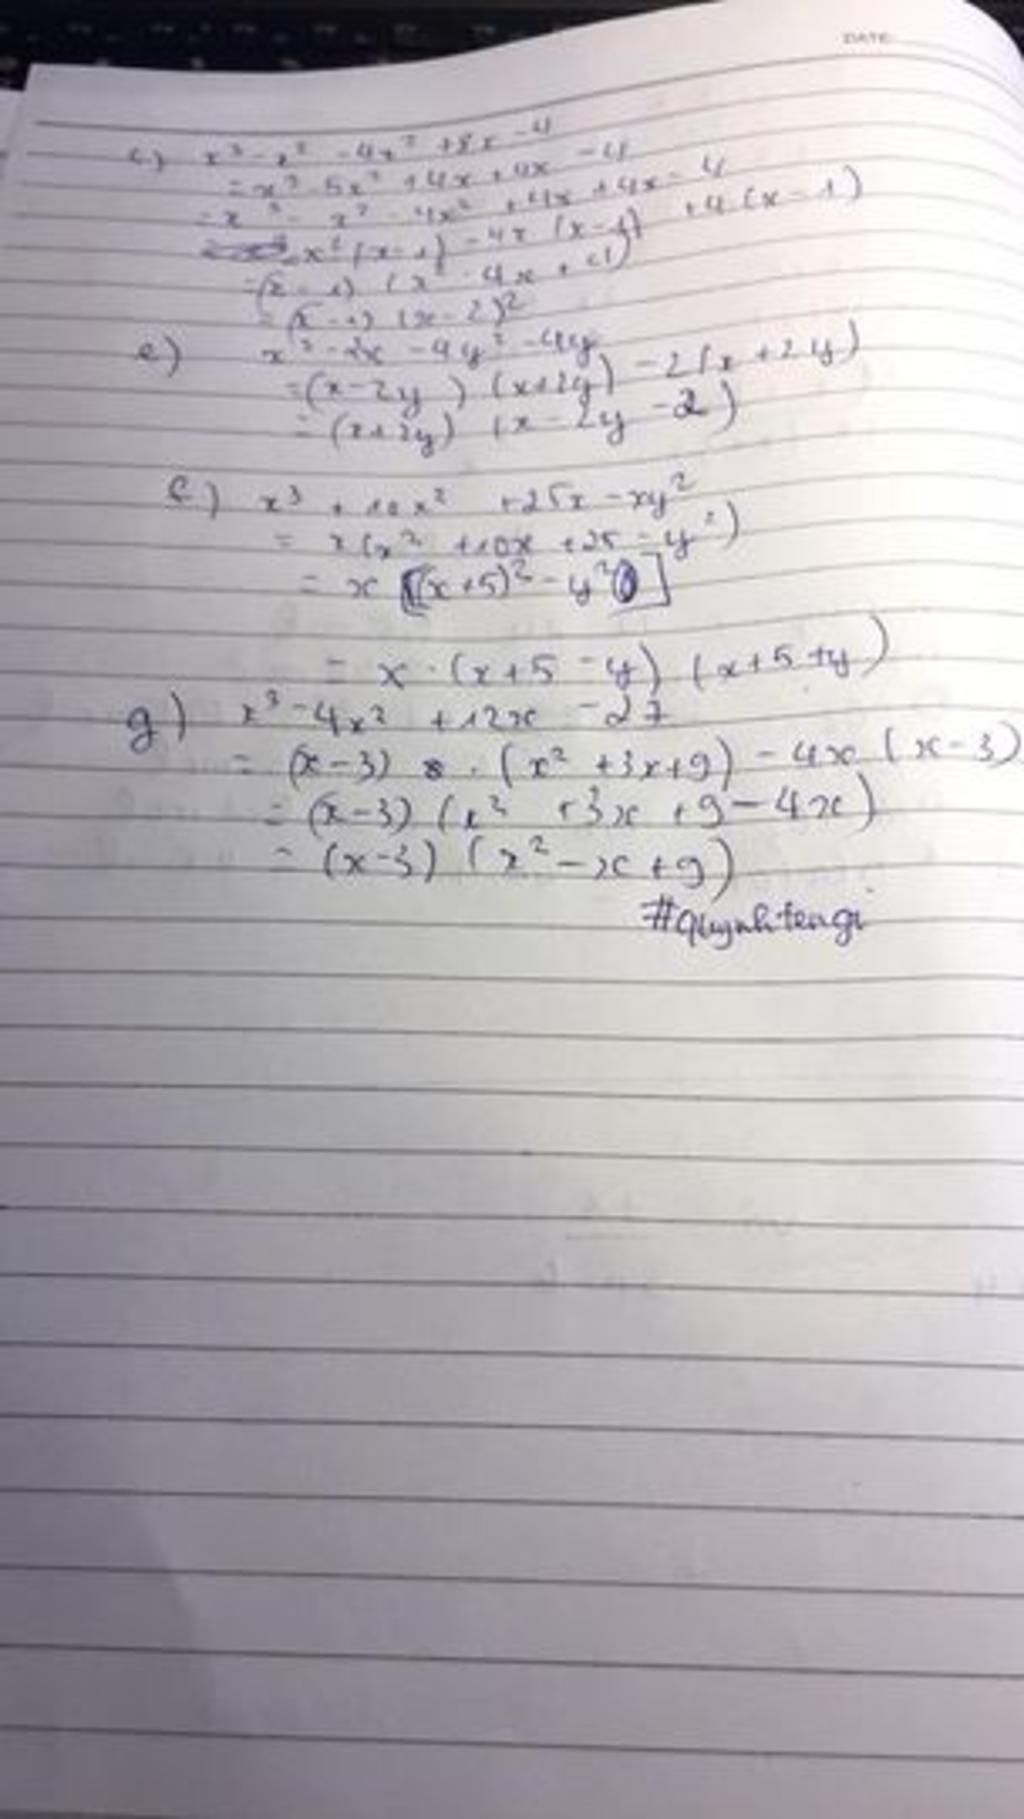 DATE:
c) x³ - x² - 4x² + 8x - 4
= x³ - 5x² + 4x + 4x - 4
= x³ - x² - 4x² + 4x + 4x - 4
x² (x - 1) - 4x (x - 1) + 4 (x - 1)
= (x - 1) (x² - 4x + 4)
= (x - 1) (x - 2)²
e) x² - 2x - 4y² - 4y
= (x - 2y) (x + 2y) - 2(x + 2y)
= (x + 2y) (x - 2y - 2)
f) x³ + 10x² + 25x - xy²
= x(x² + 10x + 25 - y²)
= x [(x + 5)² - y²]
= x . (x + 5 - y) (x + 5 + y)
g) x³ - 4x² + 12x - 27
= (x - 3) . (x² + 3x + 9) - 4x (x - 3)
= (x - 3) (x² + 3x + 9 - 4x)
= (x - 3) (x² - x + 9)
#quynhtengi